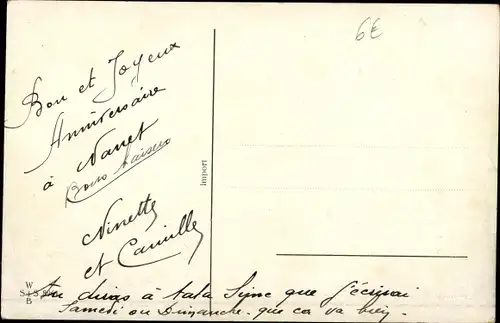 6€
Bon et Joyeux
Anniversaire
à Nanet
Bons baisers
Ninette
et Camille
import
W
S+S
B
Tu diras à tata que j'écrirai
Samedi ou Dimanche - que ça va bien -